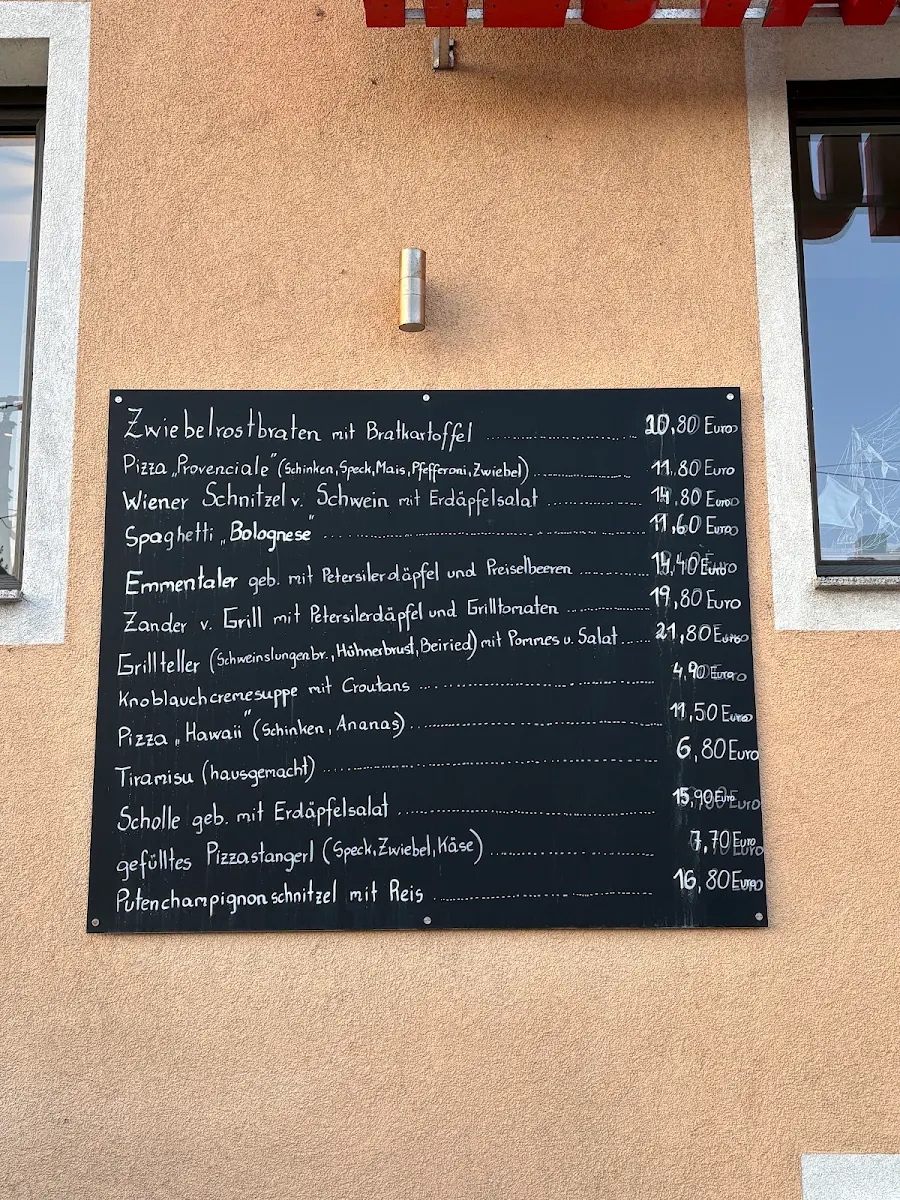 Zwiebelrostbraten mit Bratkartoffel ........ 20,80 Euro
Pizza „Provenciale" (Schinken, Speck, Mais, Pfefferoni, Zwiebel) ........ 11,80 Euro
Wiener Schnitzel v. Schwein mit Erdäpfelsalat ........ 14,80 Euro
Spaghetti „Bolognese" ........ 11,60 Euro
Emmentaler geb. mit Petersilerdäpfel und Preiselbeeren ........ 14,40 Euro
Zander v. Grill mit Petersilerdäpfel und Grilltomaten ........ 19,80 Euro
Grillteller (Schweinslungenbr., Hühnerbrust, Beiried) mit Pommes u. Salat ........ 21,80 Euro
Knoblauchcremesuppe mit Croutans ........ 4,90 Euro
Pizza „Hawaii" (Schinken, Ananas) ........ 11,50 Euro
Tiramisu (hausgemacht) ........ 6,80 Euro
Scholle geb. mit Erdäpfelsalat ........ 15,90 Euro
gefülltes Pizzastangerl (Speck, Zwiebel, Käse) ........ 7,70 Euro
Putenchampignonschnitzel mit Reis ........ 16,80 Euro